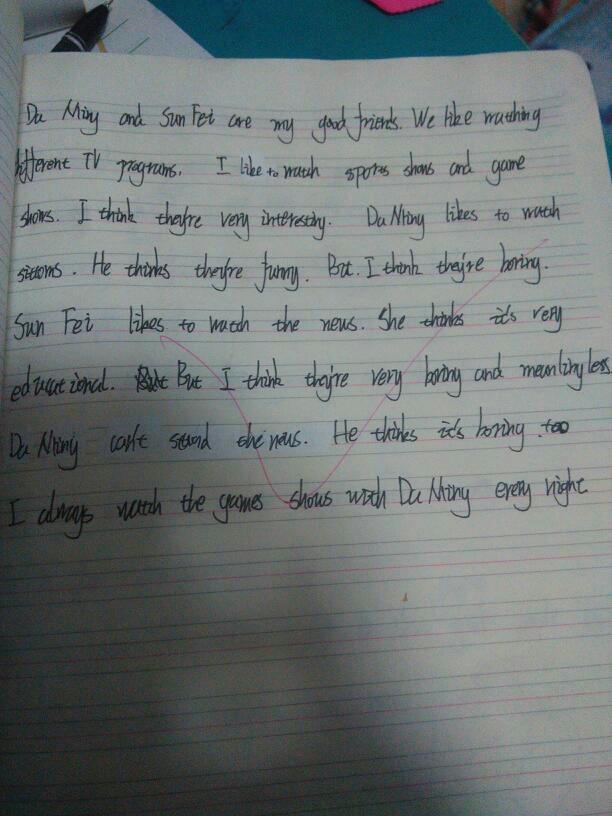 Da Ming and Sun Fei are my good friends. We like watching
different TV programs. I like to watch sports shows and game
shows. I think they're very interesting. Da Ming likes to watch
sitcoms. He thinks they're funny. But. I think they're boring.
Sun Fei likes to watch the news. She thinks it's very
educational. But I think they're very boring and meaningless.
Da Ming can't stand the news. He thinks it's boring. too
I always watch the games shows with Da Ming every night